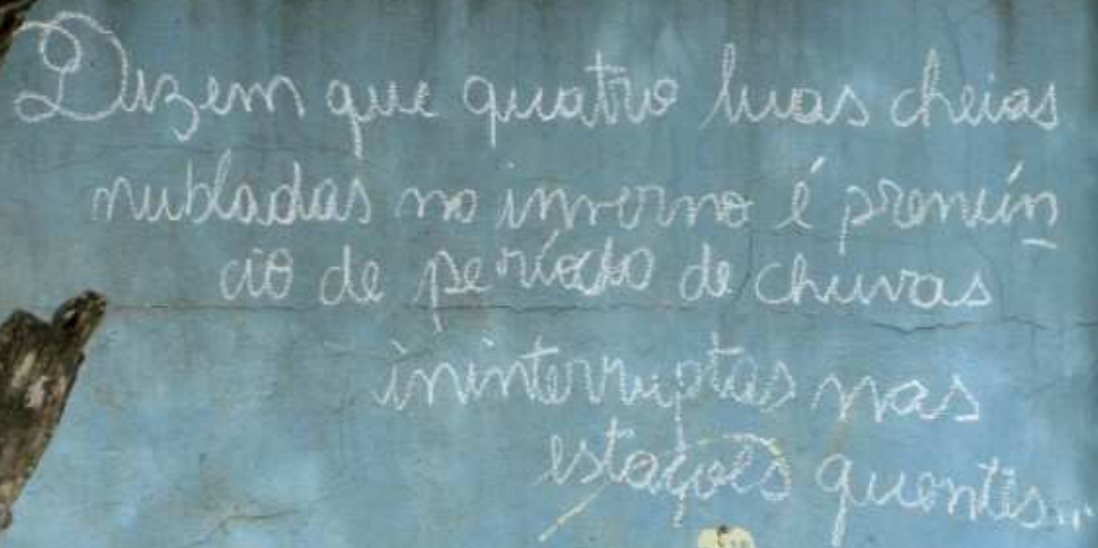 Dizem que quatro luas cheias
nubladas no inverno é prenún
cio de período de chuvas
ininterruptas nas
estações quentes...